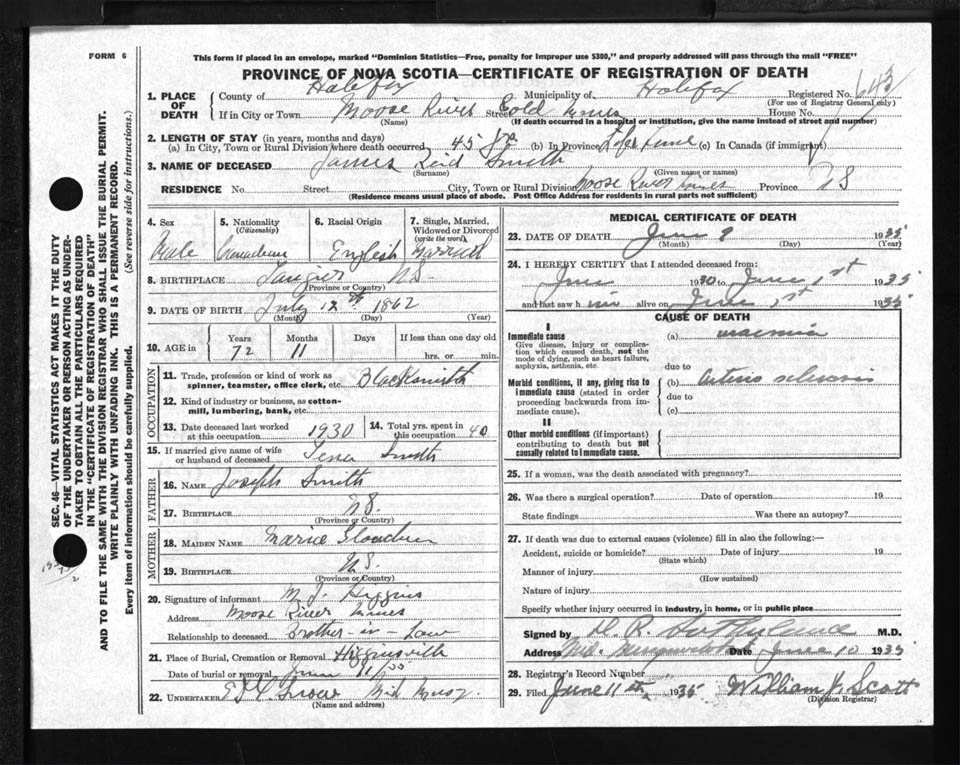 FORM 6
This form if placed in an envelope, marked "Dominion Statistics—Free, penalty for improper use $300," and properly addressed will pass through the mail "FREE"
PROVINCE OF NOVA SCOTIA—CERTIFICATE OF REGISTRATION OF DEATH
1. PLACE OF DEATH
County of Halifax Municipality of Halifax Registered No. 643
(For use of Registrar General only)
If in City or Town Moose River Gold Mines Street House No.
(Name) (If death occurred in a hospital or institution, give the name instead of street and number)
2. LENGTH OF STAY (in years, months and days)
(a) In City, Town or Rural Division where death occurred 45 yrs (b) In Province Life time (c) In Canada (if immigrant)
3. NAME OF DECEASED James Reid Smith
(Surname) (Given name or names)
RESIDENCE No. Street City, Town or Rural Division Moose River Mines Province NS
(Residence means usual place of abode. Post Office Address for residents in rural parts not sufficient)
4. Sex Male
5. Nationality (Citizenship) Canadian
6. Racial Origin English
7. Single, Married, Widowed or Divorced (write the word) Married
8. BIRTHPLACE Tangier NS.
(Province or Country)
9. DATE OF BIRTH July 12th 1862
(Month) (Day) (Year)
10. AGE in Years 72 Months 11 Days If less than one day old hrs. or min.
OCCUPATION
11. Trade, profession or kind of work as spinner, teamster, office clerk, etc. Blacksmith
12. Kind of industry or business, as cotton-mill, lumbering, bank, etc.
13. Date deceased last worked at this occupation 1930
14. Total yrs. spent in this occupation 40
15. If married give name of wife or husband of deceased Smith
FATHER
16. NAME Joseph Smith
17. BIRTHPLACE NS.
(Province or Country)
MOTHER
18. MAIDEN NAME
19. BIRTHPLACE NS.
(Province or Country)
20. Signature of informant M. J. Higgins
Address Moose River Mines
Relationship to deceased Brother-in-Law
21. Place of Burial, Cremation or Removal Higginsville
Date of burial or removal June 11/35
22. UNDERTAKER
(Name and address)
MEDICAL CERTIFICATE OF DEATH
23. DATE OF DEATH June 9 1935
(Month) (Day) (Year)
24. I HEREBY CERTIFY that I attended deceased from:
June 1930 to June 1st 1935
and last saw him alive on June 1st 1935
CAUSE OF DEATH
I
Immediate cause
Give disease, injury or complication which caused death, not the mode of dying, such as heart failure, asphyxia, asthenia, etc.
(a) uraemia
due to
Morbid conditions, if any, giving rise to immediate cause (stated in order proceeding backwards from immediate cause).
(b) Arterio sclerosis
due to
(c)
II
Other morbid conditions (if important) contributing to death but not causally related to immediate cause.
25. If a woman, was the death associated with pregnancy?
26. Was there a surgical operation? Date of operation 19
State findings Was there an autopsy?
27. If death was due to external causes (violence) fill in also the following:—
Accident, suicide or homicide? Date of injury 19
(State which)
Manner of injury
(How sustained)
Nature of injury
Specify whether injury occurred in industry, in home, or in public place
Signed by M.D.
Address Mid. Musquodoboit Date June 10 1935
28. Registrar's Record Number
29. Filed June 11th 1935 William J. Scott
(Division Registrar)
SEC. 46—VITAL STATISTICS ACT MAKES IT THE DUTY
OF THE UNDERTAKER OR PERSON ACTING AS UNDER-
TAKER TO OBTAIN ALL THE PARTICULARS REQUIRED
IN THE "CERTIFICATE OF REGISTRATION OF DEATH"
AND TO FILE THE SAME WITH THE DIVISION REGISTRAR WHO SHALL ISSUE THE BURIAL PERMIT.
WRITE PLAINLY WITH UNFADING INK. THIS IS A PERMANENT RECORD.
Every item of information should be carefully supplied. (See reverse side for instructions.)